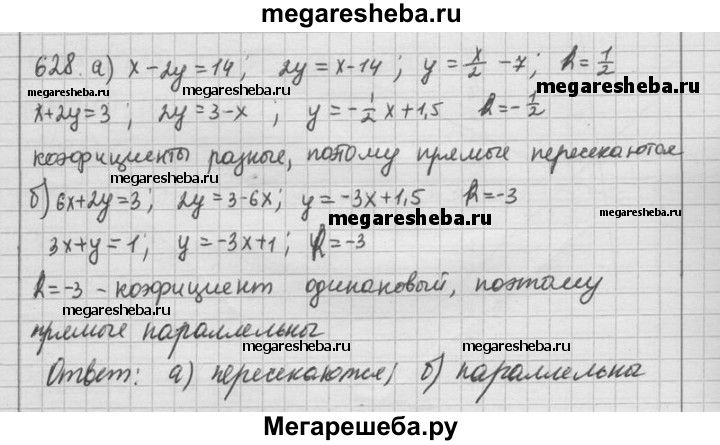 megaresheba.ru
628. а) x-2y=14; 2y=x-14; y=x/2 -7; k=1/2
megaresheba.ru
megaresheba.ru
x+2y=3; 2y=3-x; y=-1/2 x+1,5 k=-1/2
megaresheba.ru
коэфициенты разные, потому прямые пересекаются
megaresheba.ru
б) 6x+2y=3; 2y=3-6x; y=-3x+1,5 k=-3
megaresheba.ru
megaresheba.ru
3x+y=1; y=-3x+1; k=-3
k=-3 - коэфициент одинаковый, поэтому
megaresheba.ru
прямые параллельны
megaresheba.ru
Ответ: а) пересекаются; б) параллельна
Мегарешеба.ру